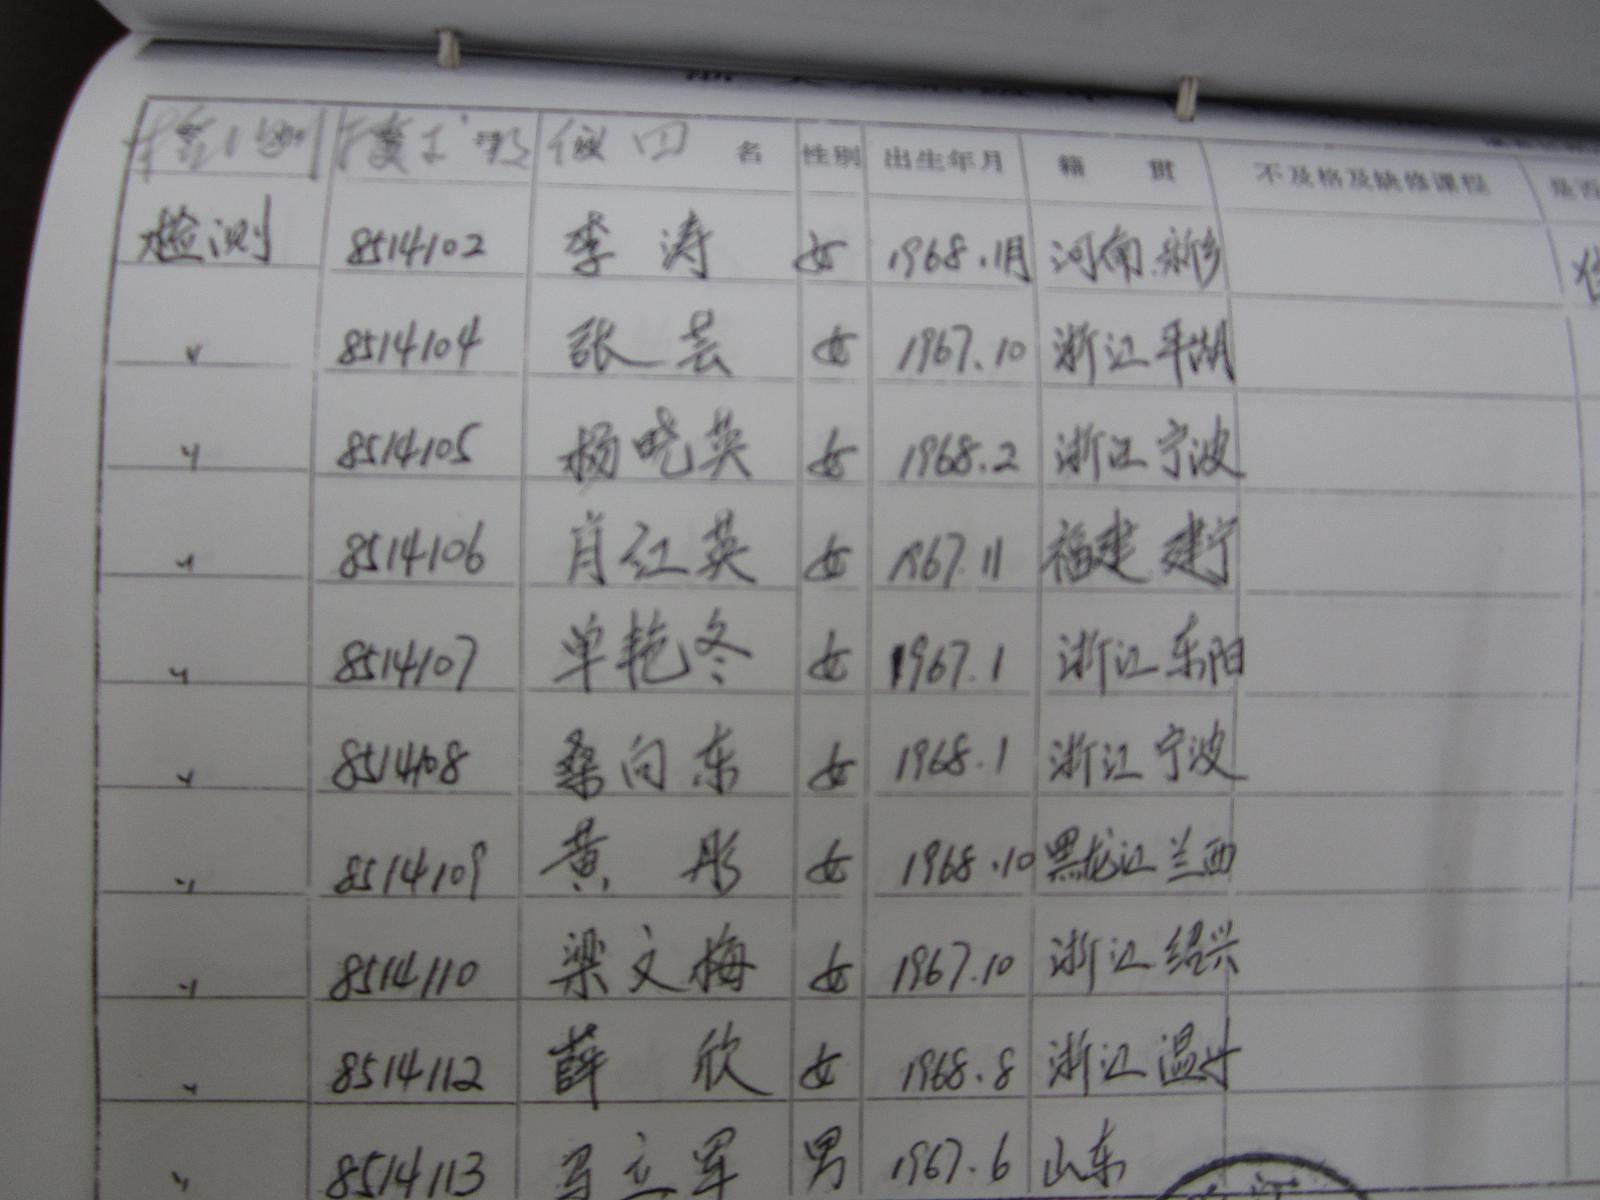 名 性别 出生年月 籍贯 不及格及缺修课程 是否
检测 8514102 李涛 女 1968.11月 河南.新乡
〃 8514104 张芸 女 1967.10 浙江平湖
〃 8514105 杨晓英 女 1968.2 浙江宁波
〃 8514106 肖红英 女 1967.11 福建建宁
〃 8514107 单艳冬 女 1967.1 浙江东阳
〃 8514108 桑向东 女 1968.1 浙江宁波
〃 8514109 黄彤 女 1968.10 黑龙江兰西
〃 8514110 梁文梅 女 1967.10 浙江绍兴
〃 8514112 薛欣 女 1968.8 浙江温州
〃 8514113 马立军 男 1967.6 山东